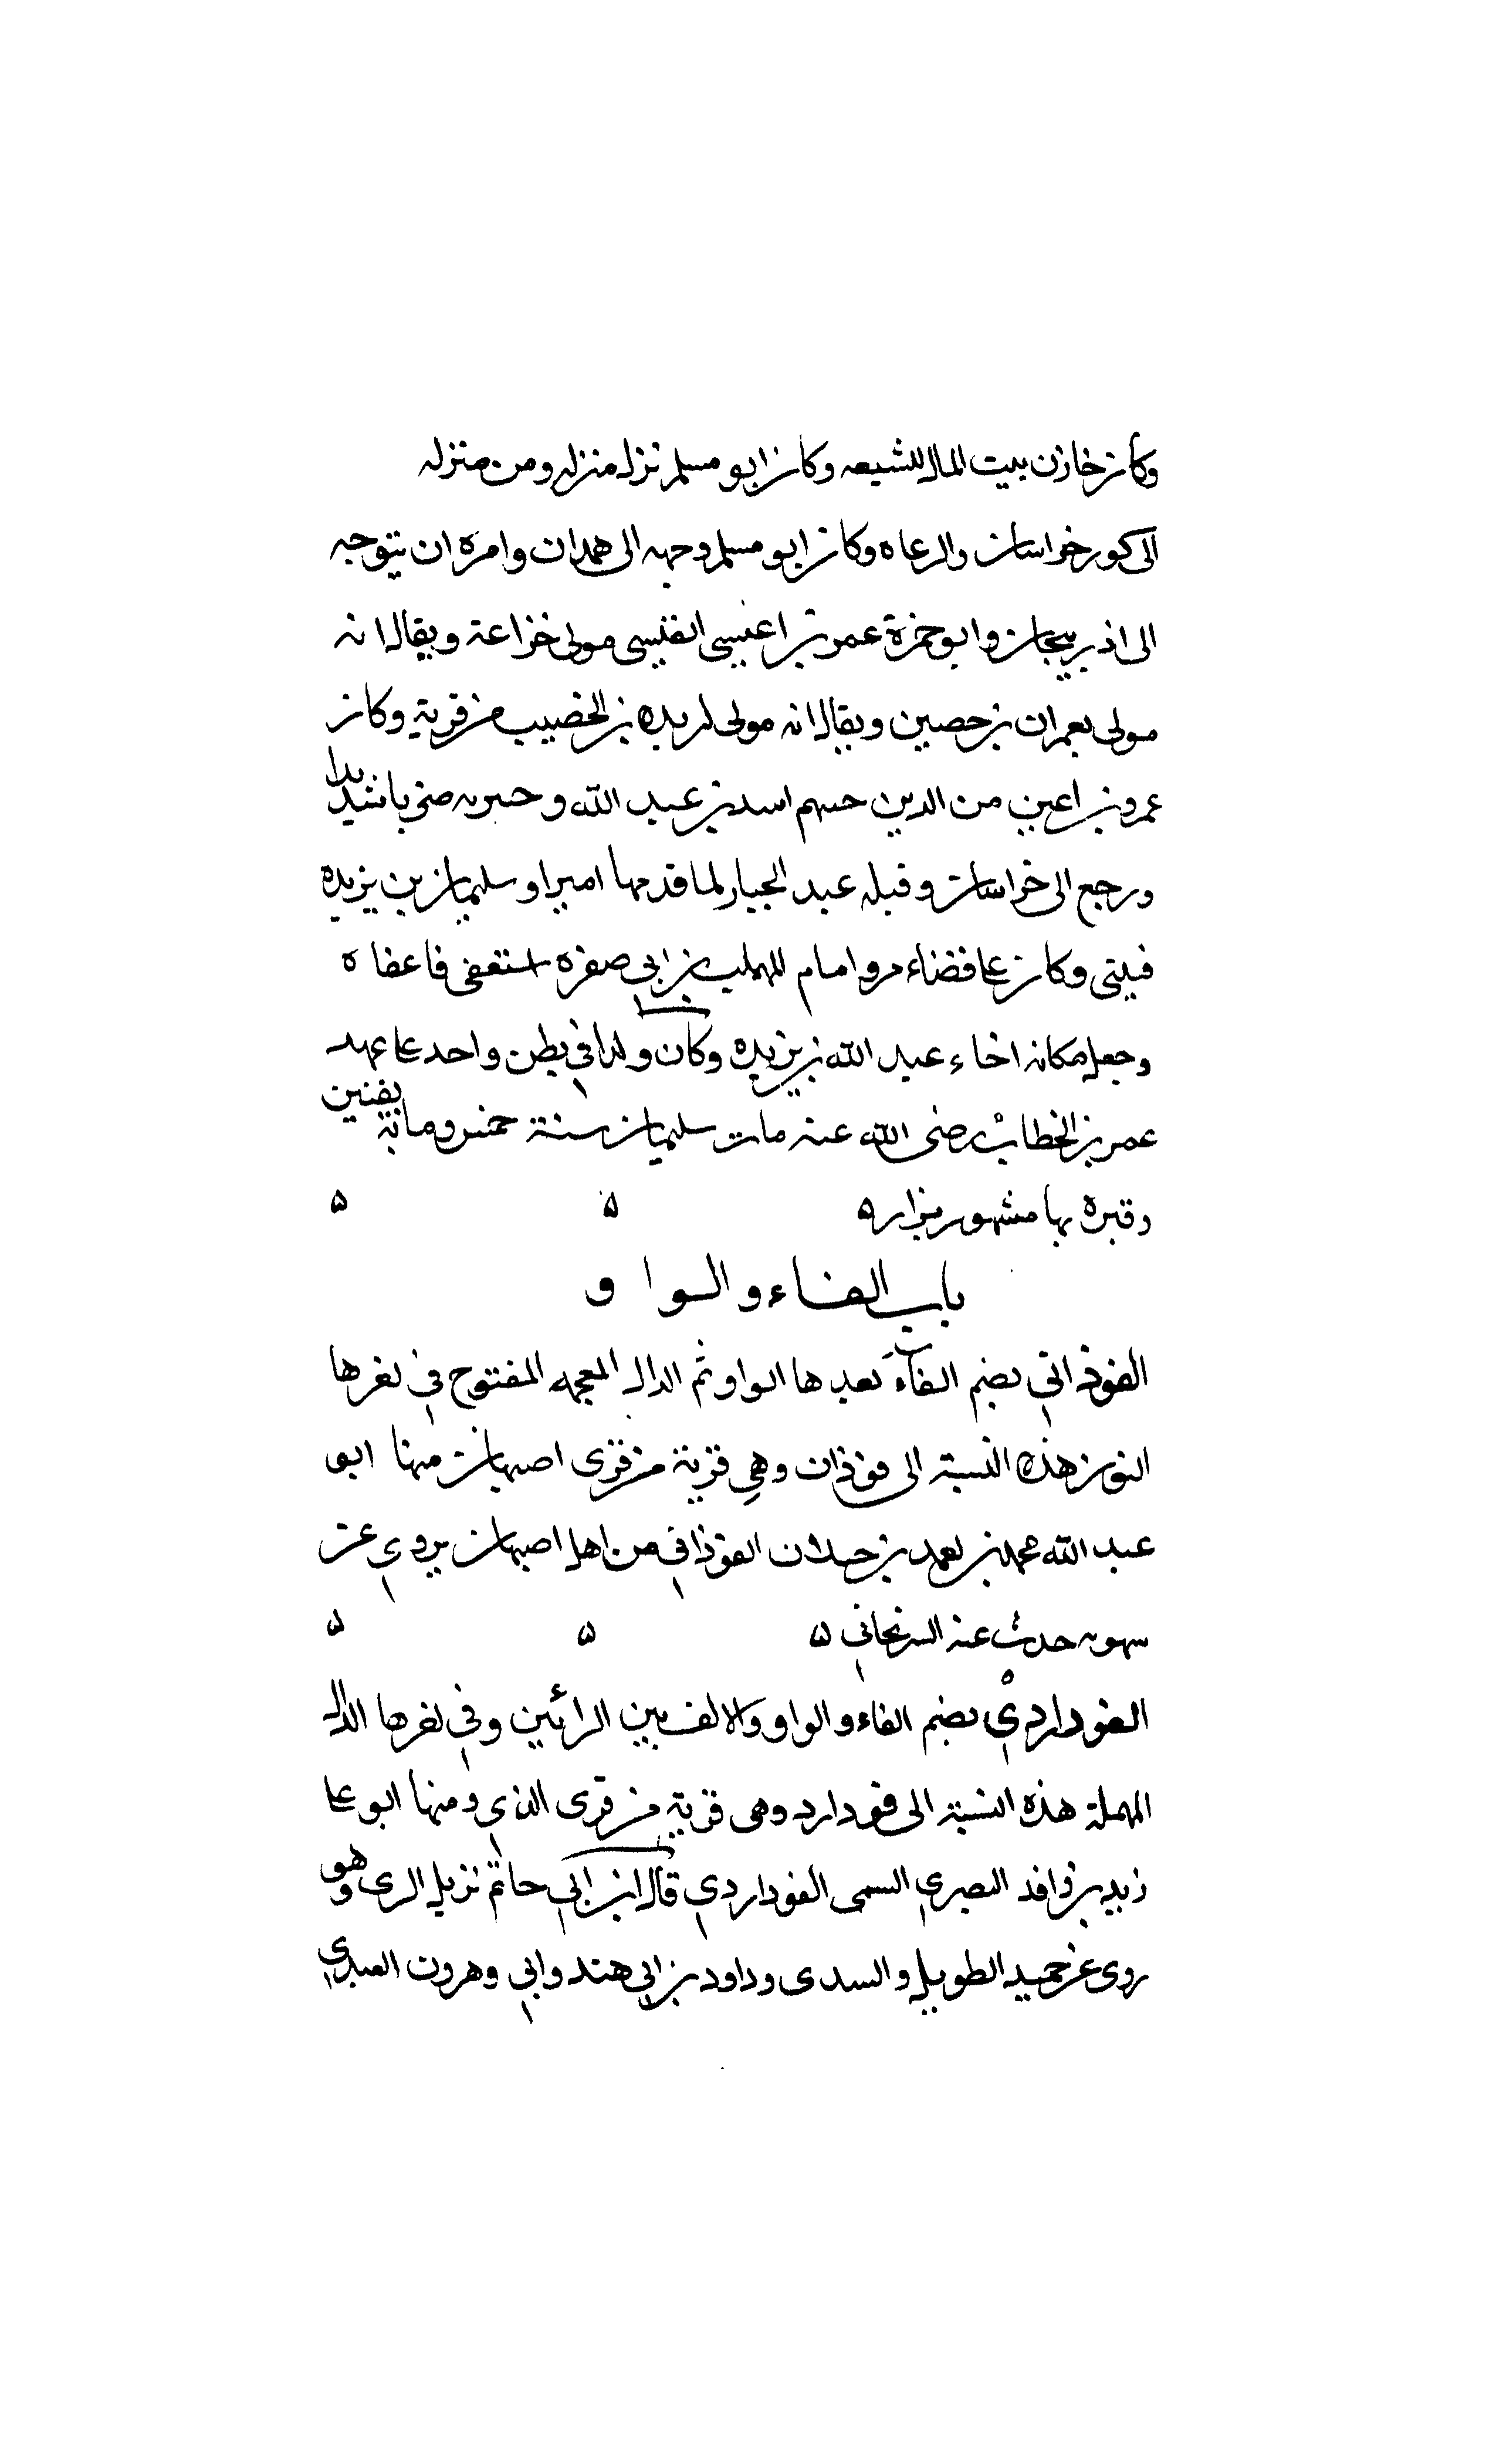 وكان خازن بيت المال للشيعه وكان ابو مسلم نزل منزله ومن منزله
الى كور خراسان والرعاه وكان ابو مسلم وجهه الى همدان وامره ان يتوجه
الى اذربيجان وابو حمزة عمر بن اعيسى الفنيسى مولى خزاعة ويقال انه
مولى لعمران بن حصين ويقال انه مولى لبريده بن الخصيب من قرية وكان
عمرو بن اعين من الدين حبسهم اسد بن عبد الله و شديدا
ورجع الى خراسان وقبله عبد الجبار لما قدمها اميرا وسليمان بن بريده
فينى وكان على قضاء مرو امام المهلب بن ابي صفره استعفى فاعفاه
وجعل مكانه اخاء عبد الله بن بريده وكان ولدا في بطن واحد على عهد
عمر بن الخطاب رضى الله عنه مات سليمان سنة خمس ومائة بفنين
وقبره بها مشهور يزار ه ه ه
باب الفاء والواو
الفوذاني بضم الفاء بعدها الواو ثم الدال المعجمه المفتوح في اخرها
النون هذه النسبة الى فوذان وهي قرية من قرى اصبهان منها ابو
عبد الله محمد بن احمد بن حيلان الفوذاني من اهل اصبهان يروي عن
سمويه حدث عنه السرنجاني ه ه ه
الفوراردي بضم الفاء والواو والالف بين الرائين وفي اخرها الدال
المهملة هذه النسبة الى فورارد وهى قرية من قرى الذي ومنها ابو على
زيد بن وافد البصري السمى الفوراردي قال ابن ابي حاتم نزيل الرى وهو
روى عن حميد الطويل والسدى وداود بن ابي هند وابي وهرون العبدي